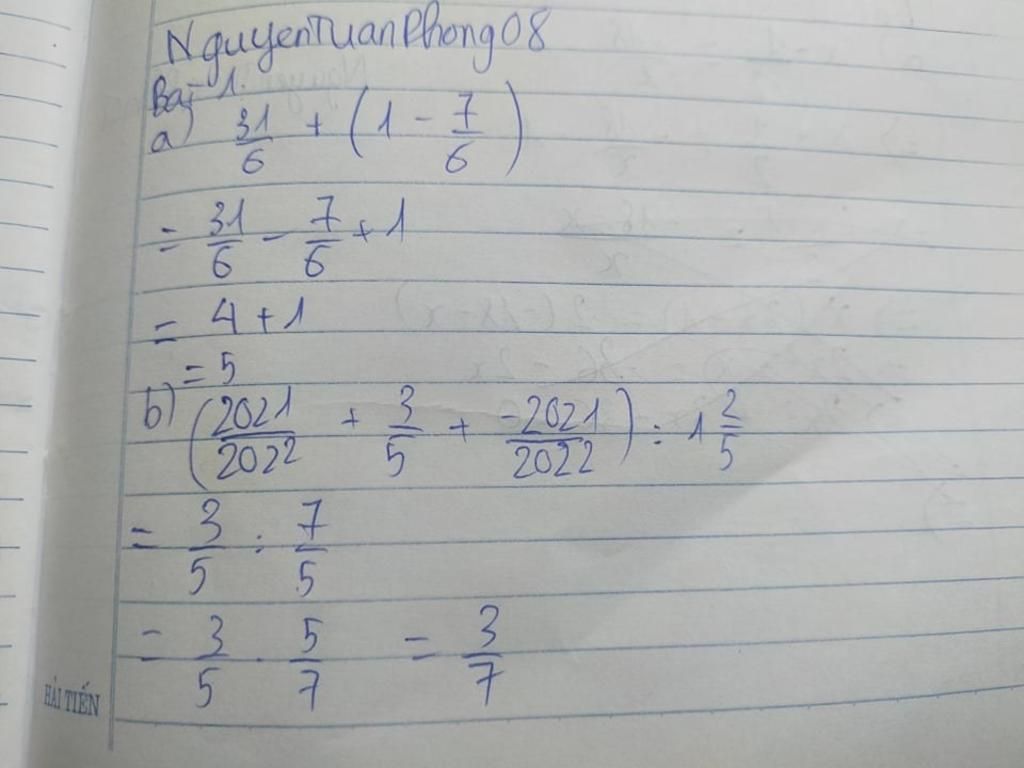 NguyenTuanPhong08
Bài 1.
a) 31/6 + (1 - 7/6)
= 31/6 - 7/6 + 1
= 4 + 1
= 5
b) (2021/2022 + 3/5 + -2021/2022) : 1 2/5
= 3/5 : 7/5
= 3/5 . 5/7 = 3/7
HẢI TIẾN